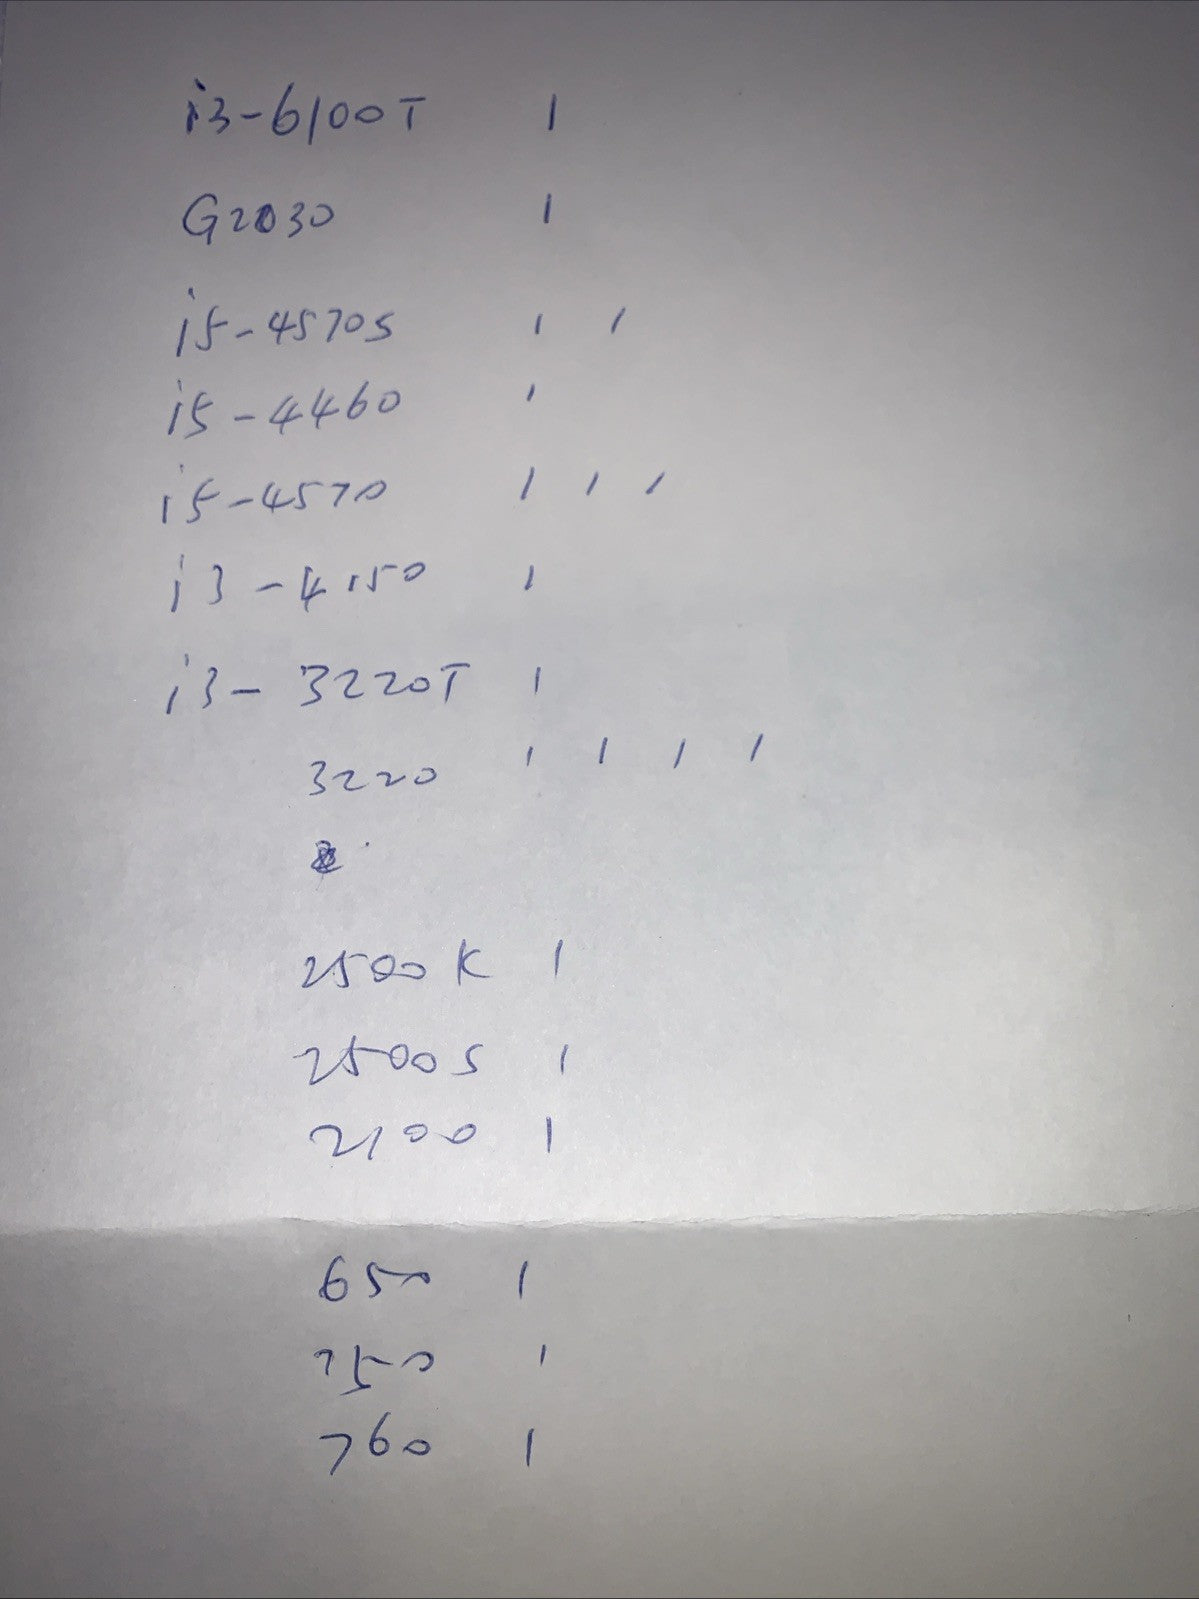 i3-6100T 1
G2030 1
i5-4570S 1 1
i5-4460 1
i5-4570 1 1 1
i3-4150 1
i3-3220T 1
3220 1 1 1 1
2500K 1
2500S 1
2100 1
650 1
750 1
760 1